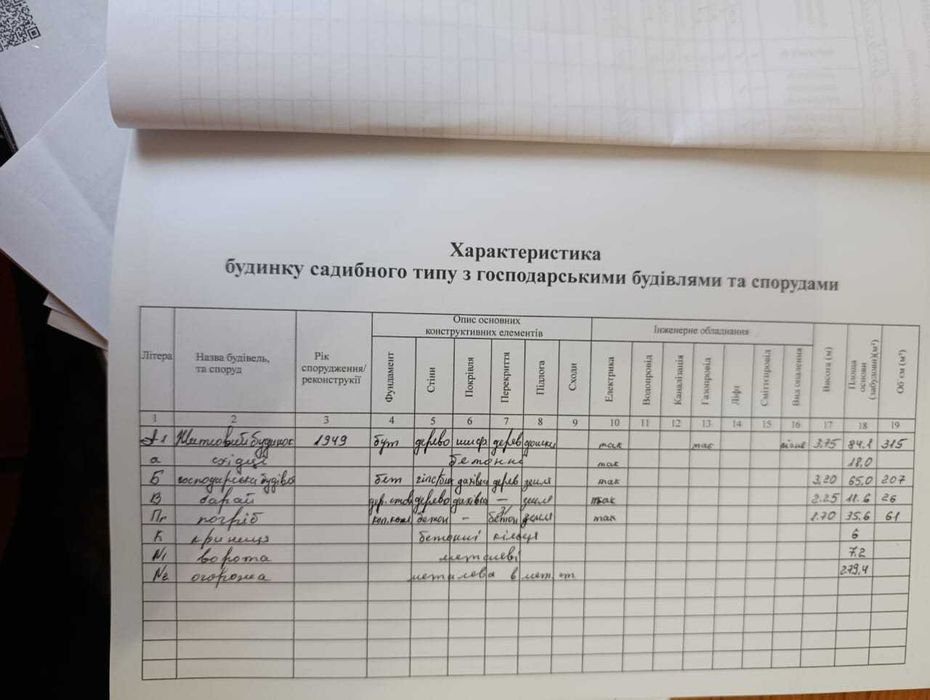 Характеристика
будинку садибного типу з господарськими будівлями та спорудами
Літера Назва будівель, та споруд Рік спорудження/ реконструкції Опис основних конструктивних елементів Інженерне обладнання Висота (м) Площа основи (забудови)(м²) Об'єм (м³)
Фундамент Стіни Покрівля Перекриття Підлога Сходи Електрика Водопровід Каналізація Газопровід Ліфт Сміттєпровід Вид опалення
1 2 3 4 5 6 7 8 9 10 11 12 13 14 15 16 17 18 19
А1 Житловий будинок 1949 бут дерево шиф дерев дошки так так пічне 3.75 84.1 315
а східці бетонні так 18,0
Б господарська будівл бет дахівка дерев земля так 3,20 65,0 207
В сарай дерево дахівка – земля так 2.25 11.6 26
Пг погріб бетон – бетон земля так 1.70 35.6 61
К криниця бетонні кільця 6
№1 ворота металеві 7.2
№2 огорожа металева в мет. ст 279,4